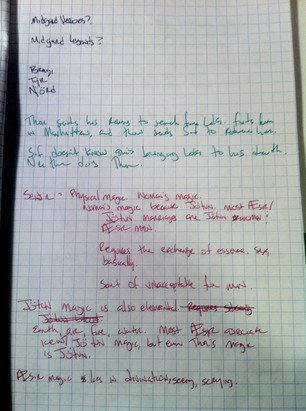 Midgard Heroes?
Midgard legends?
Bragi
Tyr
Njörd
Thor sends his Ravens to search for Loki. finds him
in Manhattan, and then sends Sif to retrieve him.
Sif doesn't know she's bringing Loki to his death.
Neither does Thor.
Seidr = Physical magic. Women's magic.
Women's magic because Jötun. most Æsir/
Jötun marriages are Jötun women +
Æsir men.
Requires the exchange of essence. Sex,
basically.
Sort of unacceptable for men
Jötun magic is also elemental.
Earth, air, fire, water. Most Æsir associate
ice w/ Jötun magic, but even Thor's magic
is Jötun.
Æsir magic lies in divination, seeing, scrying.